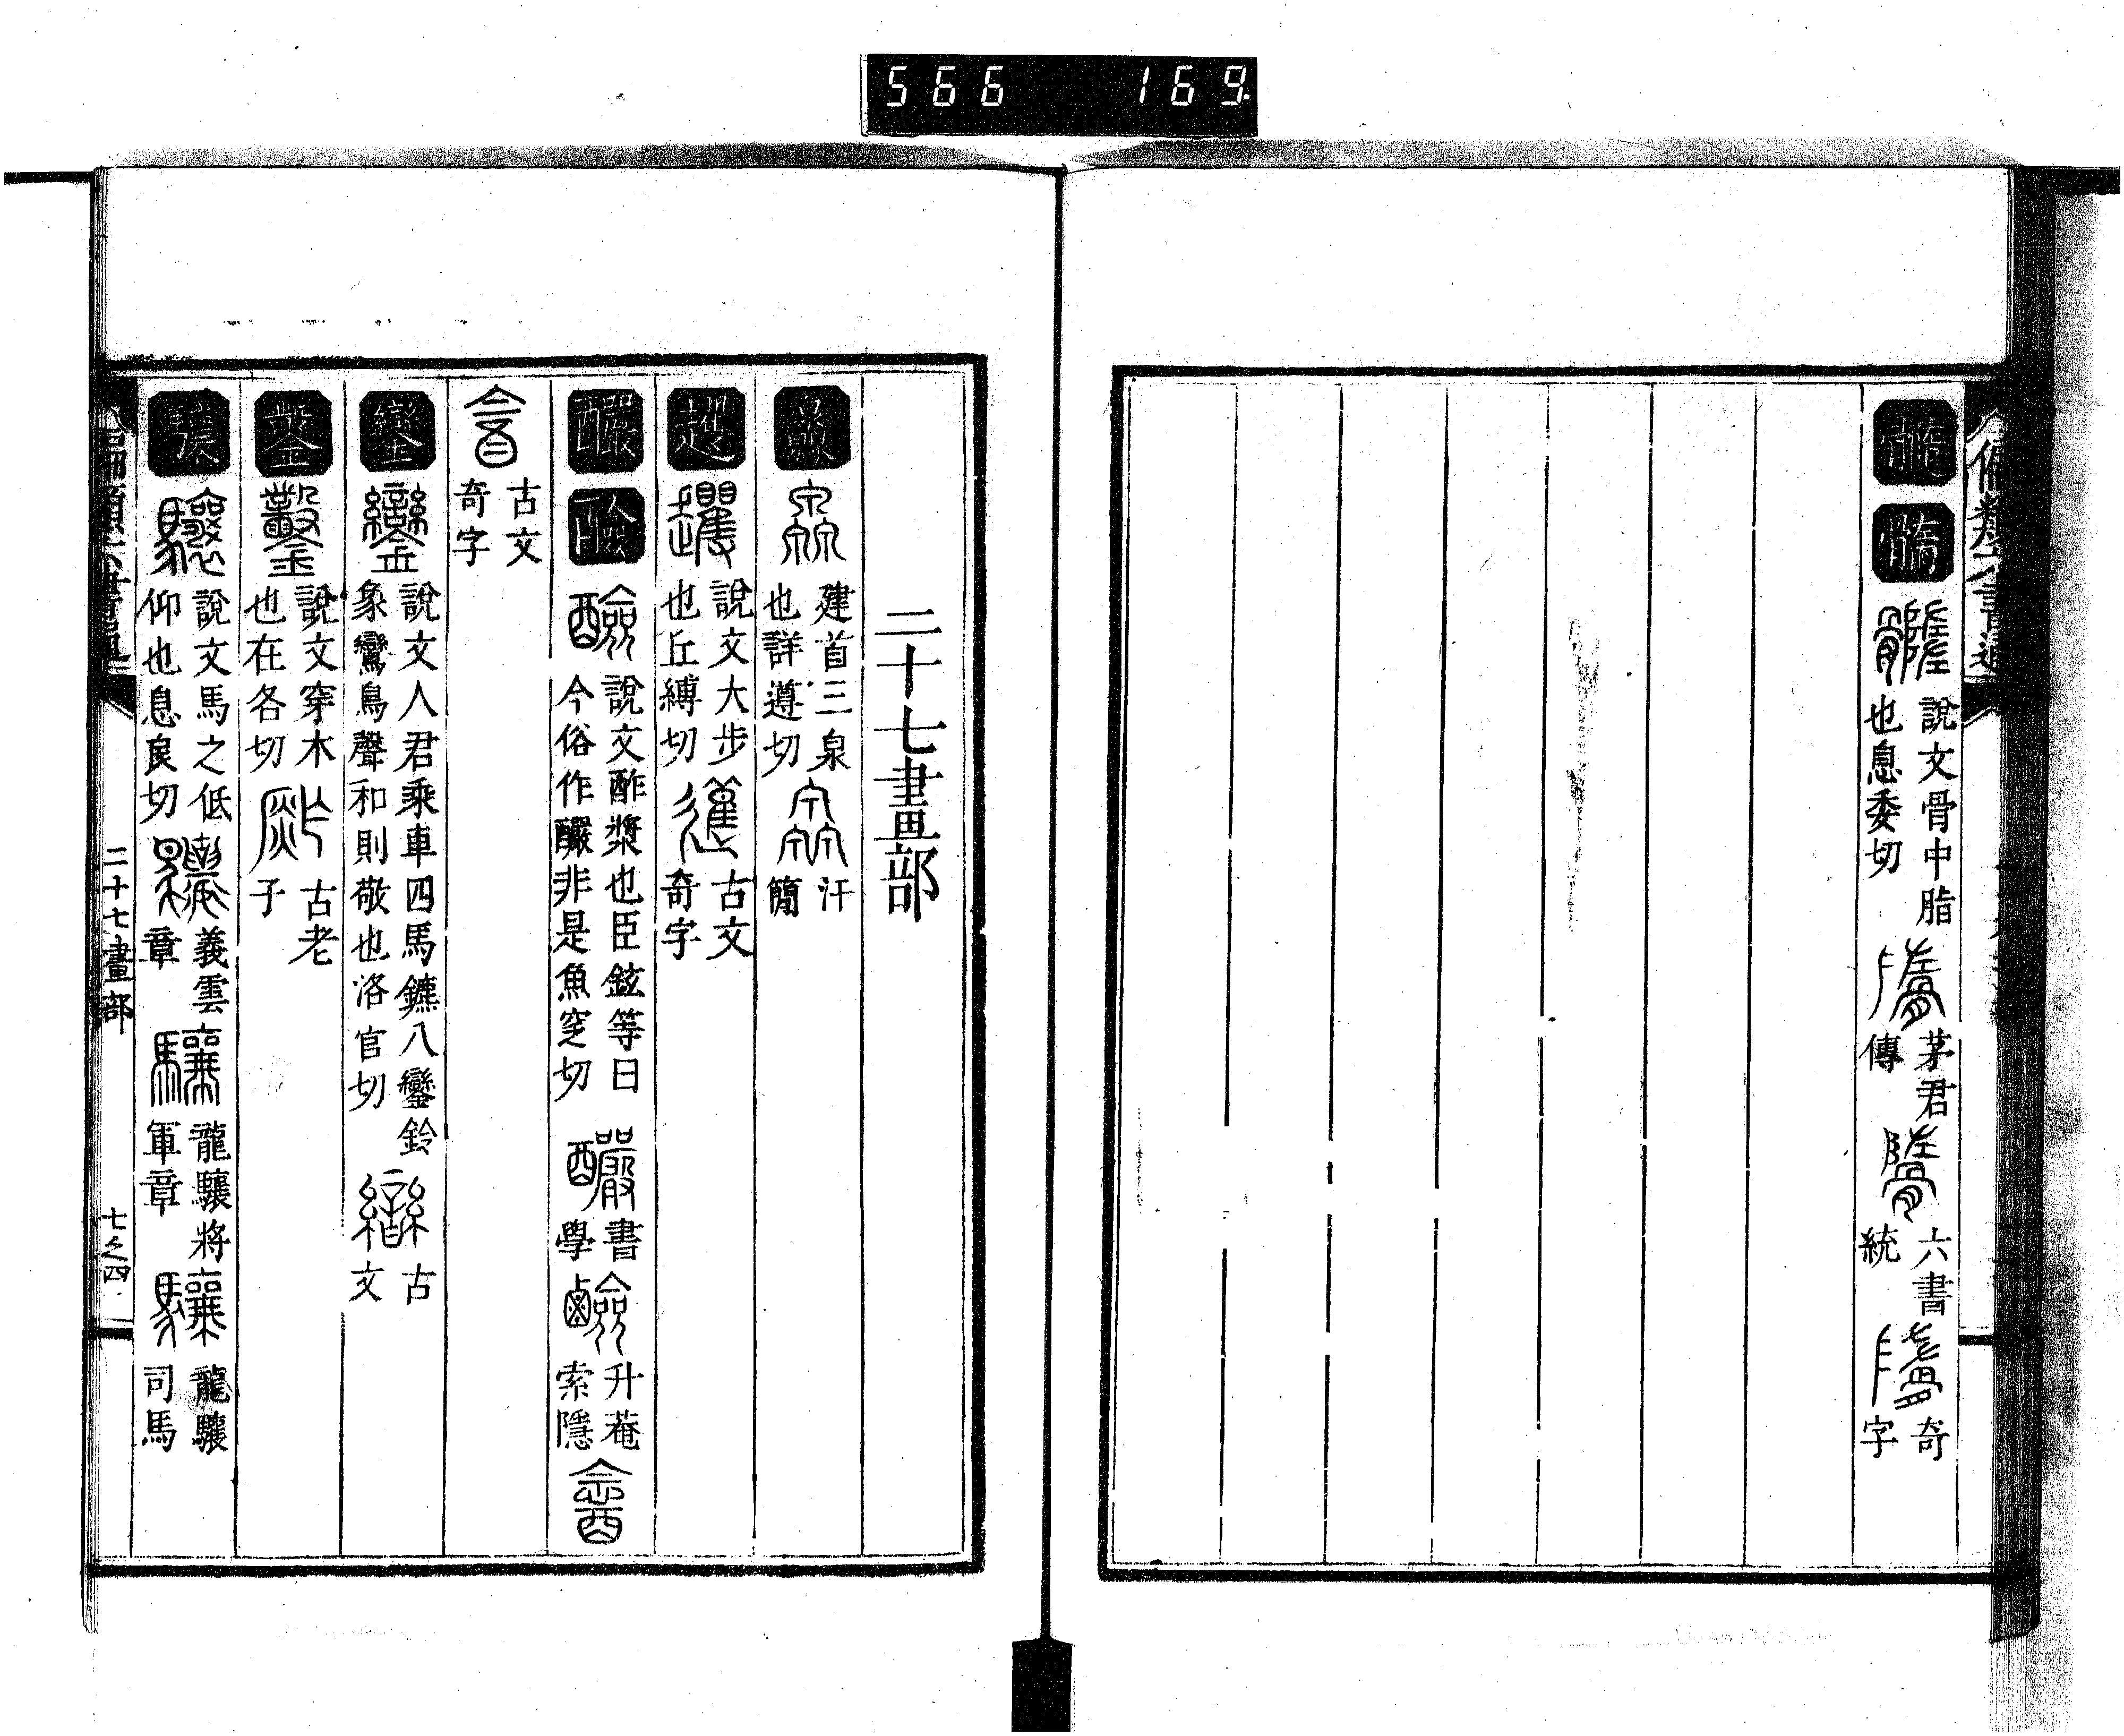 566 169
說文骨中脂也息委切 茅君傳 六書統 奇字
二十七畫部
灥 建首三泉也詳遵切 汗簡
趯 說文大步也丘縛切 古文奇字
釅 說文酢漿也臣鉉等曰今俗作釅非是魚窆切 書學 升菴索隱
古文奇字
鑾 說文人君乘車四馬鑣八鑾鈴象鸞鳥聲和則敬也洛官切 古文
鑿 說文穿木也在各切 古老子
驤 說文馬之低仰也息良切 義雲章 龍驤將軍章 龍驤司馬
二十七畫部 七之四